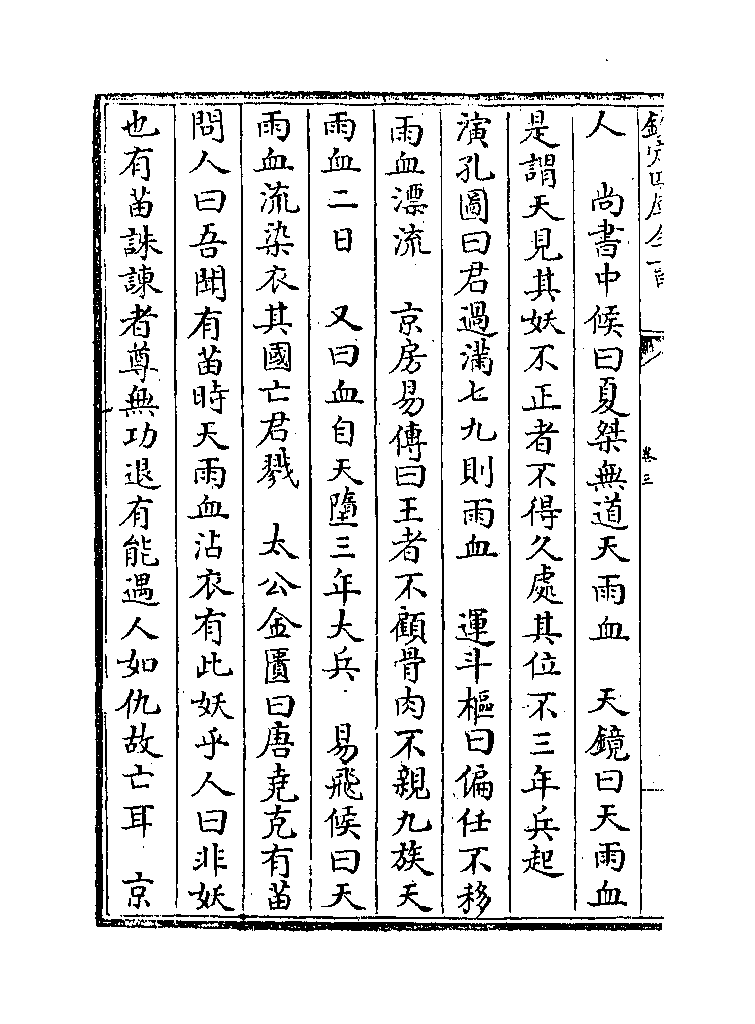 人　尚書中候曰夏桀無道天雨血　天鏡曰天雨血
是謂天見其妖不正者不得久處其位不三年兵起
演孔圖曰君過滿七九則雨血　運斗樞曰偏任不移
雨血漂流　京房易傳曰王者不顧骨肉不親九族天
雨血二日　又曰血自天墮三年大兵　易飛候曰天
雨血流染衣其國亡君戮　太公金匱曰唐堯克有苗
問人曰吾聞有苗時天雨血沾衣有此妖乎人曰非妖
也有苗誅諫者尊無功退有能遇人如仇故亡耳　京
卷三